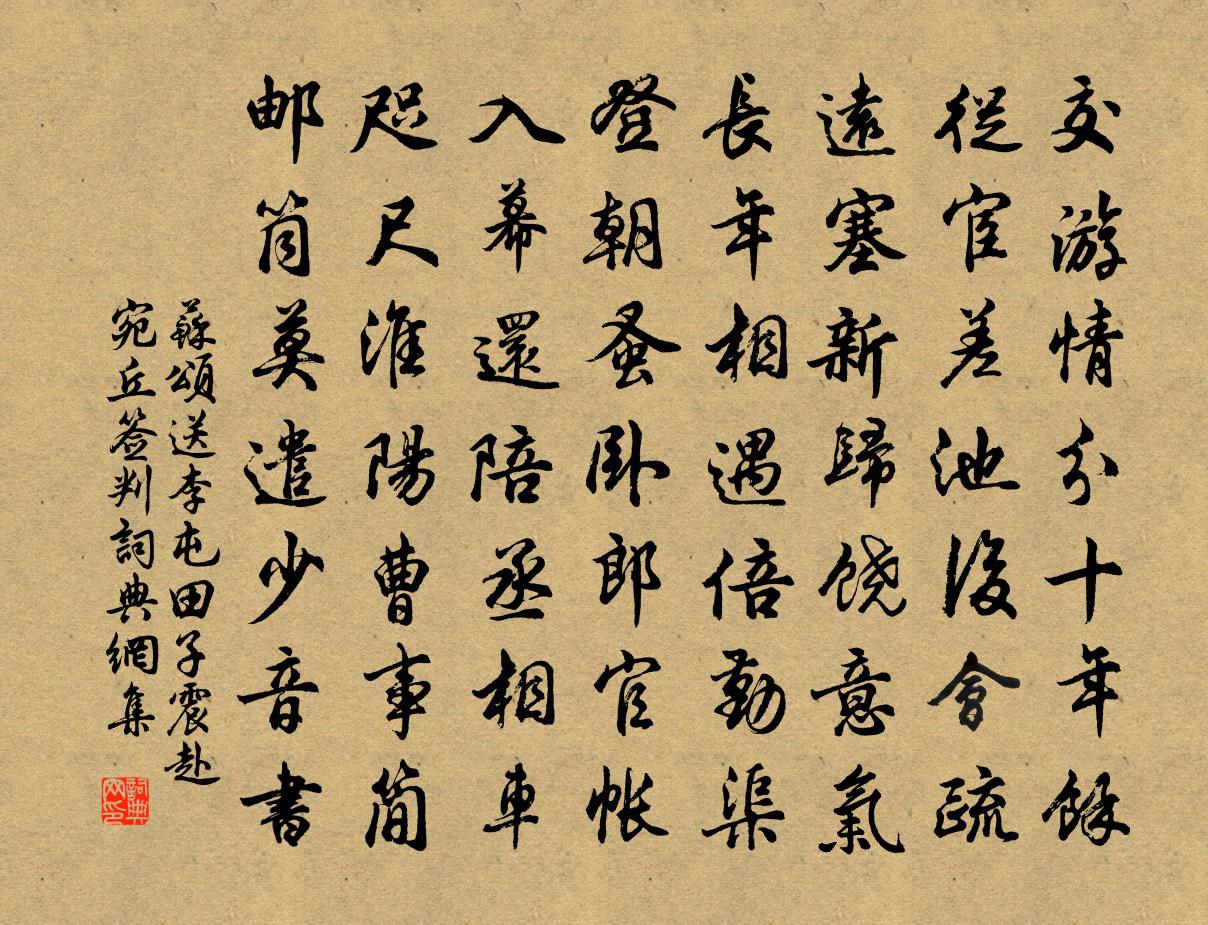 交游情分十年餘
從宦差池後會疏
遠塞新歸饶意氣
長年相遇倍勤渠
登朝蚤卧郎官帐
入幕還陪丞相車
咫尺淮陽曹事简
邮筒莫遣少音書
蘇頌送李屯田子震赴
宛丘签判詞典網集
詞典网印